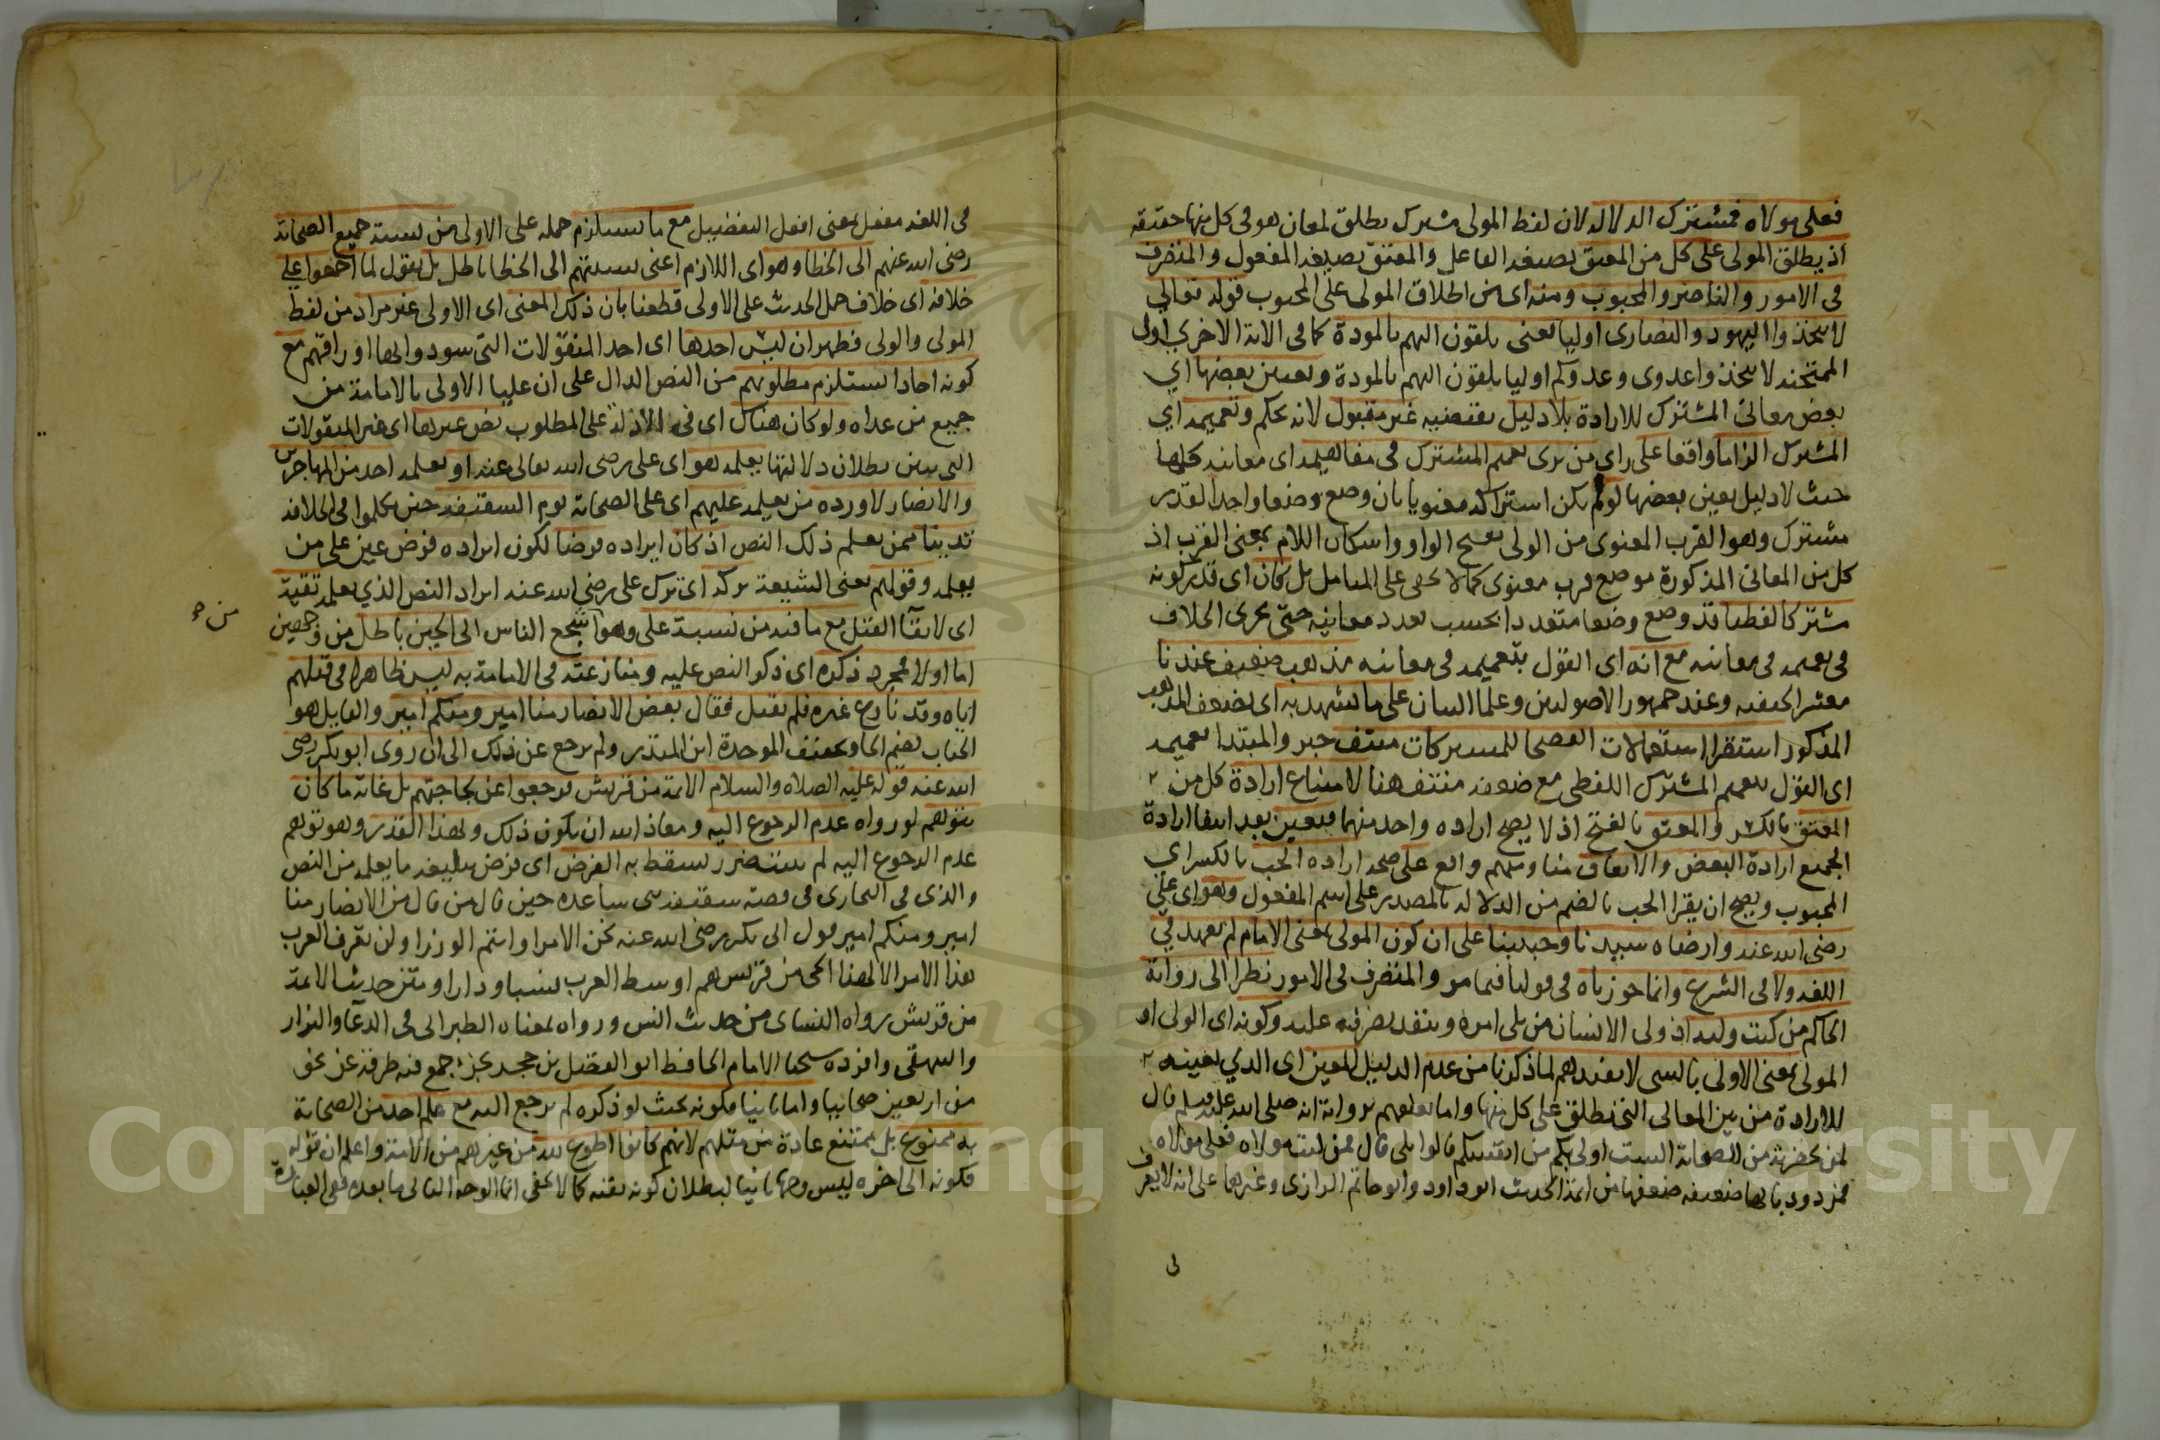 فعلى مولاه فمشترك الدلالة لان لفظ المولى مشترك يطلق لمعان هو في كل منها حقيقة
اذ يطلق المولى على كل من المعتق بصيغة الفاعل والمعتق بصيغة المفعول والمتصرف
في الامور والناصر والمحبوب ومنه اى من اطلاق المولى على المحبوب قوله تعالى
لا تتخذوا اليهود والنصارى اوليا يعنى يلقون اليهم بالمودة كما في الاية الاخرى اول
الممتحنة لا تتخذوا عدوى وعدوكم اوليا يلقون اليهم بالمودة وتعيين بعضها اي
بعض معانى المشترك للارادة بلا دليل يقتضيه غير مقبول لانه تحكم وتعميمه اي
المشترك الزاما واقعا على راي من يرى تعميم المشترك في مفاهيمه اى معانيه كلها
حيث لا دليل يعين بعضها لو لم يكن اشتراكه معنويا بان وضع وضعا واحدا لقدر
مشترك وهو القرب المعنوى من الولى بفتح الواو واسكان اللام بمعنى القرب اذ
كل من المعانى المذكورة موضع قرب معنوى كما لا يخفى على المتامل بل كان اى قدر كونه
مشتركا لفظيا قد وضع وضعا متعددا بحسب تعدد معانيه حتى يجرى الخلاف
في تعميمه في معانيه مع انه اى القول بتعميمه في معانيه مذهب ضعيف عندنا
معشر الحنفية وعند جمهور الاصوليين وعلما البيان على ما يشهد به اى بضعف المذهب
المذكور استقرا استعمالات الفصحا للمشتركات منتف خبر والمبتدا تعميمه
اى القول بتعميم المشترك اللفظى مع ضعفه منتف هنا لامتناع ارادة كل من
المعتق بالكسر والمعتق بالفتح اذ لا يصح ارادة واحد منهما فتعين بعد انتفا ارادة
الجميع ارادة البعض والاتفاق منا ومنهم واقع على صحة ارادة الحب بالكسر اي
المحبوب ويصح ان يقرا الحب بالضم من الدلالة بالمصدر على اسم المفعول وهو اى علي
رضى الله عنه وارضاه سيدنا وحبيبنا على ان كون المولى بمعنى الامام لم يعهد في
اللغة ولا في الشرع وانما جوزناه في قولنا فيما مر والمتصرف في الامور نظرا الى رواية
الحاكم من كنت وليه اذ ولى الانسان من يلى امره وينفذ تصرفه عليه وكونه اى الولى او
المولى بمعنى الاولى بالشى لا يفيدهم لما ذكرنا من عدم الدليل المعين اى الذي يعينه
للارادة من بين المعانى التى تطلق على كل منها واما تعلقهم برواية انه صلى الله عليه وسلم قال
لمن بحضرته من الصحابة الست اولى بكم من انفسكم قالوا بلى قال فمن كنت مولاه فعلى مولاه
فمردود بانها ضعيفة ضعفها من ائمة الحديث ابو داود وابو حاتم الرازى وغيرهما على انه لا يعرف
في اللغة مفعل بمعنى افعل التفضيل مع ما يستلزم حمله على الاولى من نسبة جميع الصحابة
رضى الله عنهم الى الخطا وهو اى اللازم اعنى نسبتهم الى الخطا باطل بل نقول لما اجمعوا على
خلافه اى خلاف حمل الحديث على الاولى قطعنا بان ذلك المعنى اى الاولى غير مراد من لفظ
المولى والولى فظهر ان ليس احدها اى احد المنقولات التى سودوا بها اوراقهم مع
كونه احادا يستلزم مطلوبهم من النص الدال على ان عليا الاولى بالامامة من
جميع من عداه ولو كان هناك اى في الادلة على المطلوب نص غيرها اى غير المنقولات
التى تبين بطلان دلالتها يعلمه هو اى على رضى الله تعالى عنه او يعلمه احد من المهاجرين
والانصار لاورده من يعلمه عليهم اى على الصحابة يوم السقيفة حين تكلموا في الخلافة
تدينا ممن يعلم ذلك النص اذ كان ايراده فرضا لكون ايراده فرض عين على من
يعلمه وقولهم يعنى الشيعة تركه اى ترك على رضى الله عنه ايراد النص الذي يعلمه تقية
اى لاتقا القتل مع ما فيه من نسبة على وهو اشجع الناس الى الجبن باطل من وجهين
اما اولا فمجرد ذكره اى ذكر النص عليه ومنازعته في الامامة به ليس ظاهرا في قتلهم
اياه وقد نازع غيره فلم يقتل فقال بعض الانصار منا امير ومنكم امير والقايل هو
الحباب بضم الحا وتخفيف الموحدة ابن المنذر ولم يرجع عن ذلك الى ان روى ابو بكر رضى
الله عنه قوله عليه الصلاة والسلام الائمة من قريش فرجعوا عن محاجتهم بل غاية ما كان
يتوهم لو رواه عدم الرجوع اليه ومعاذ الله ان يكون ذلك ولهذا القدر وهو توهم
عدم الرجوع اليه لم يتضرر يسقط به الفرض اى فرض تبليغه ما يعلمه من النص
والذى في البخارى في قصة سقيفة بنى ساعدة حين قال من قال من الانصار منا
امير ومنكم امير قول ابى بكر رضى الله عنه نحن الامرا وانتم الوزرا ولن تعرف العرب
هذا الامر الا لهذا الحى من قريش هم اوسط العرب نسبا ودارا ومتن حديث الائمة
من قريش رواه النساى من حديث انس ورواه بمعناه الطبرانى في الدعا والبزار
والبيهقى وافرده شيخنا الامام الحافظ ابو الفضل بن حجر بجزء جمع فيه طرقه عن نحو
من اربعين صحابيا واما ثانيا فكونه بحيث لو ذكره لم يرجع اليه مع علم احد من الصحابة
به ممنوع بل يمتنع عادة من مثلهم لانهم كانوا اطوع لله من غيرهم من الامة واعلم ان قوله
فكونه الى اخره ليس وجها ثانيا لبطلان كونه تقية كما لا يخفى انما الوجه الثانى ما بعده ففى العبارة